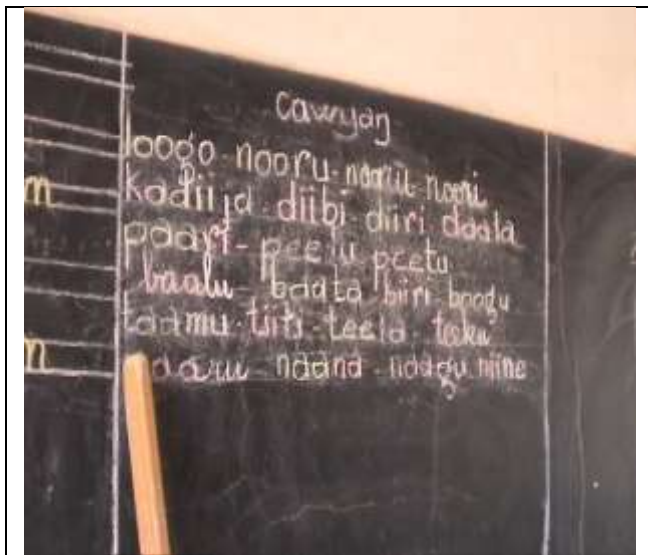 Cawyaŋ
loogo - nooru - nanil noori
n
kadiija - diibi - diiri daala
paari - peelu peetu
baalu - baata biiri - boogu
taamu - tiiti - teela - teeku
n
naaru - naana - naagu niine